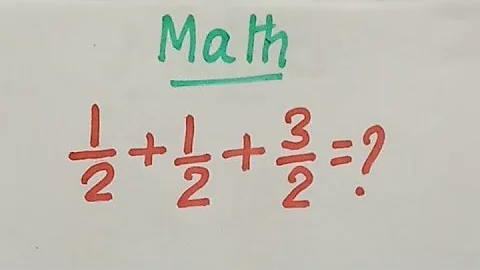 Math
1/2 + 1/2 + 3/2 = ?